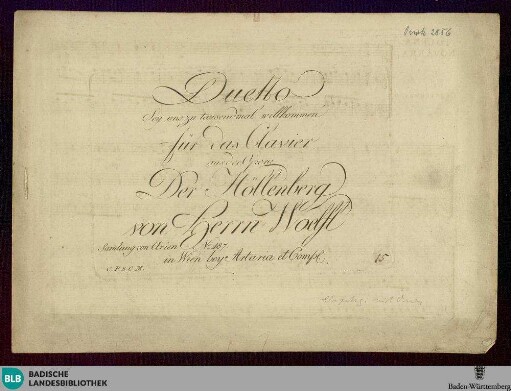 Druck 2856
Duetto
Sey uns zu tausendmal willkommen
für das Clavier
aus der Oper
Der Höllenberg
von Herrn Woelfl
Samlung von Arien No. 187
in Wien bey Artaria et Comp.
C. P. S. C. M.
15
BLB BADISCHE
LANDESBIBLIOTHEK
Baden-Württemberg